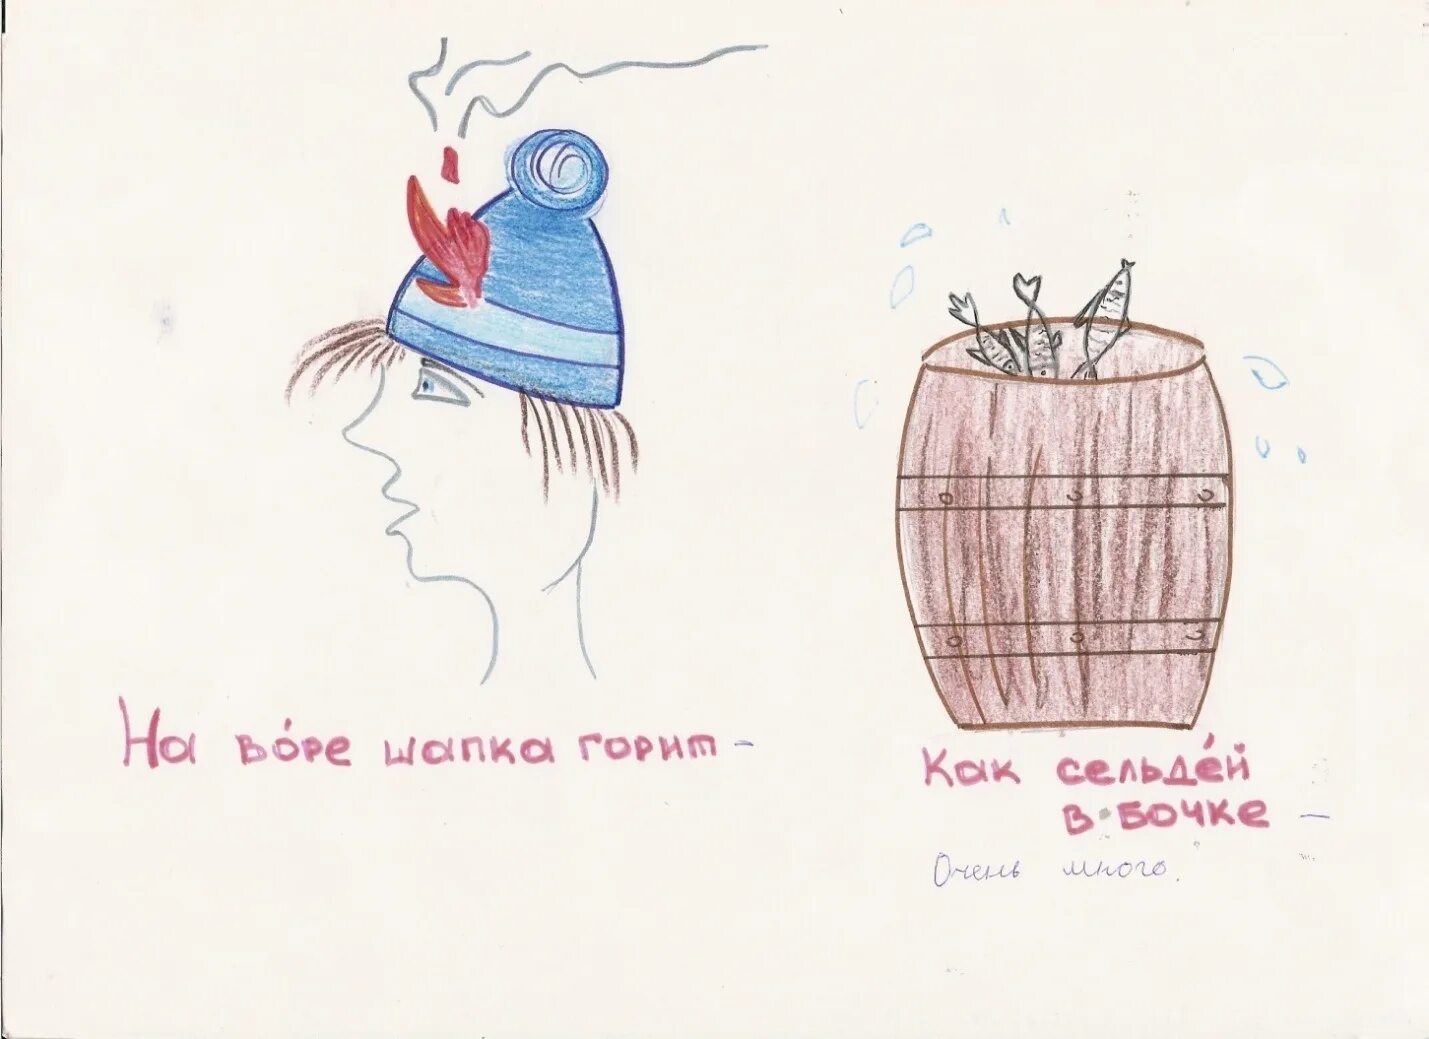 На во́ре шапка горит -
Как сельде́й
в бочке -
Очень много.